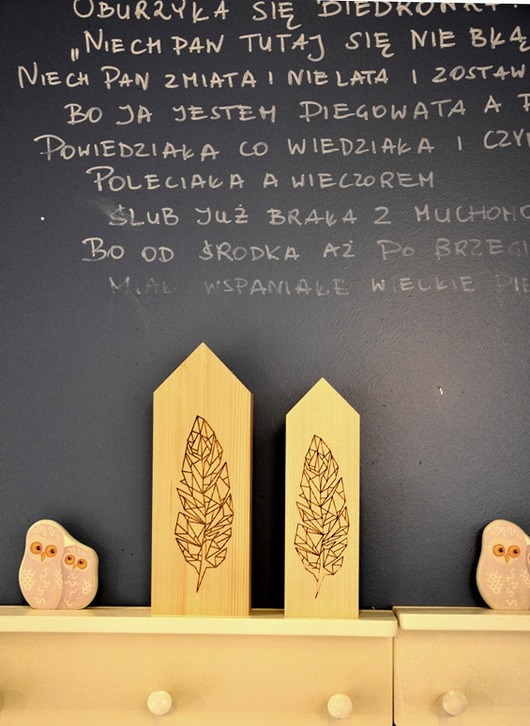 OBURZYŁA SIĘ BIEDRONKA
„NIECH PAN TUTAJ SIĘ NIE BŁĄ
NIECH PAN ZMIATA I NIELATA I ZOSTAW
BO JA JESTEM PIEGOWATA A
POWIEDZIAŁA CO WIEDZIAŁA I CZY
POLECIAŁA A WIECZOREM
ŚLUB JUŻ BRAŁA Z MUCHOMO
BO OD ŚRODKA AŻ PO BRZEG
MIAŁ WSPANIAŁE WIELKIE PIE